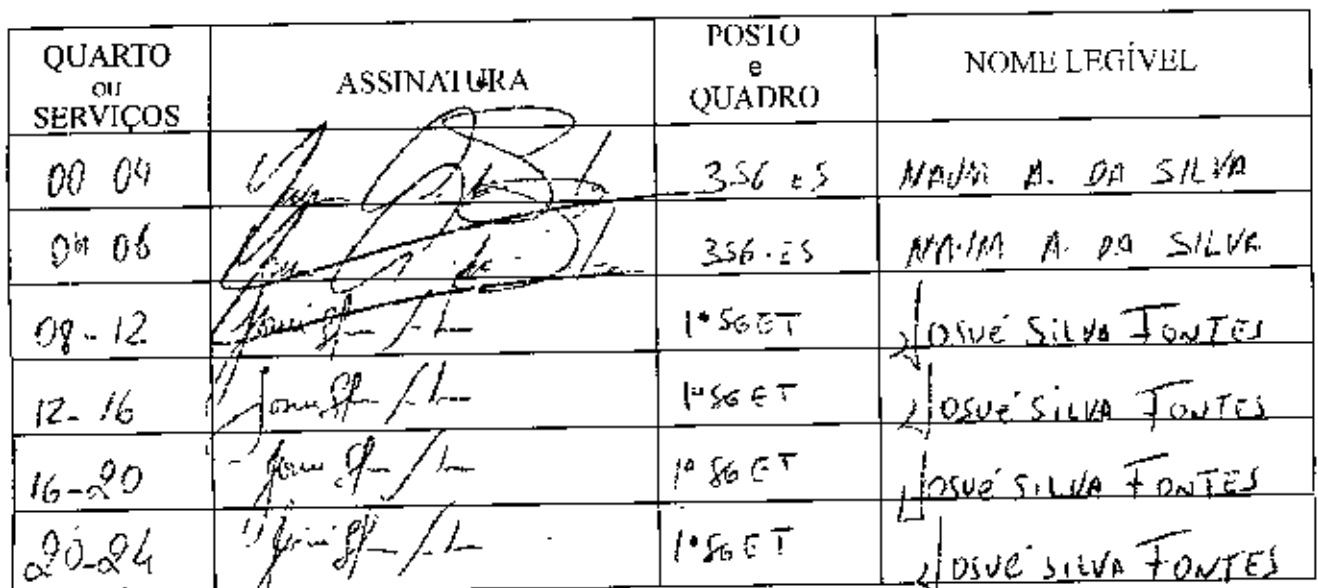 QUARTO
ou
SERVIÇOS
ASSINATURA
POSTO
e
QUADRO
NOME LEGÍVEL
00 04 3SG ES NAIM A. DA SILVA
04 08 3SG-ES NAIM A. DA SILVA
08-12 1º SG ET JOSUÉ SILVA FONTES
12-16 1º SG ET JOSUÉ SILVA FONTES
16-20 1º SG ET JOSUÉ SILVA FONTES
20-24 1º SG ET JOSUÉ SILVA FONTES